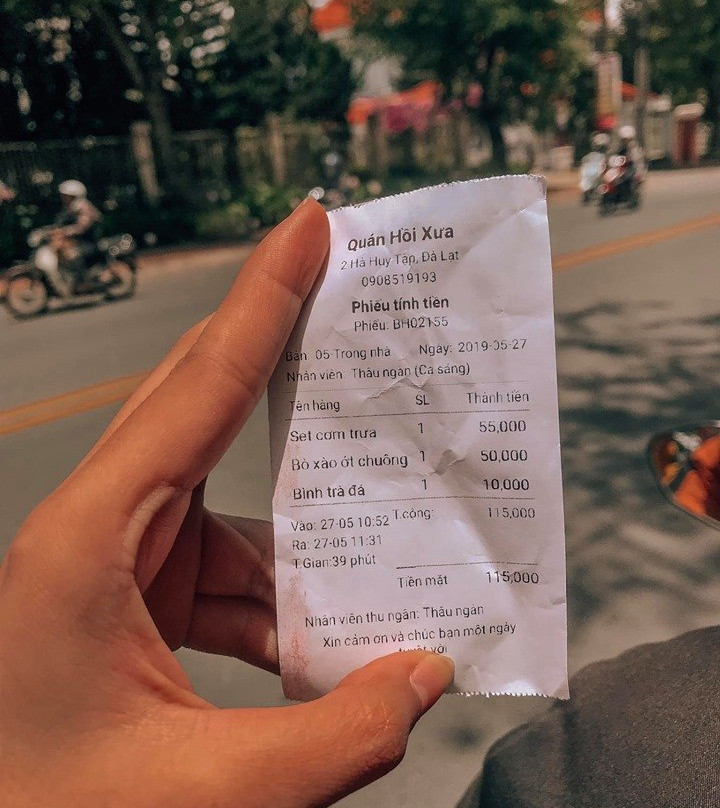 Quán Hồi Xưa
2 Hà Huy Tập, Đà Lạt
0908519193
Phiếu tính tiền
Phiếu: BH02155
Bàn: 05-Trong nhà Ngày: 2019-05-27
Nhân viên: Thâu ngân (Ca sáng)
Tên hàng SL Thành tiền
Set cơm trưa 1 55,000
Bò xào ớt chuông 1 50,000
Bình trà đá 1 10,000
Vào: 27-05 10:52 T.cộng: 115,000
Ra: 27-05 11:31
T.Gian:39 phút
Tiền mặt 115,000
Nhân viên thu ngân: Thâu ngân
Xin cảm ơn và chúc bạn một ngày
tuyệt vời